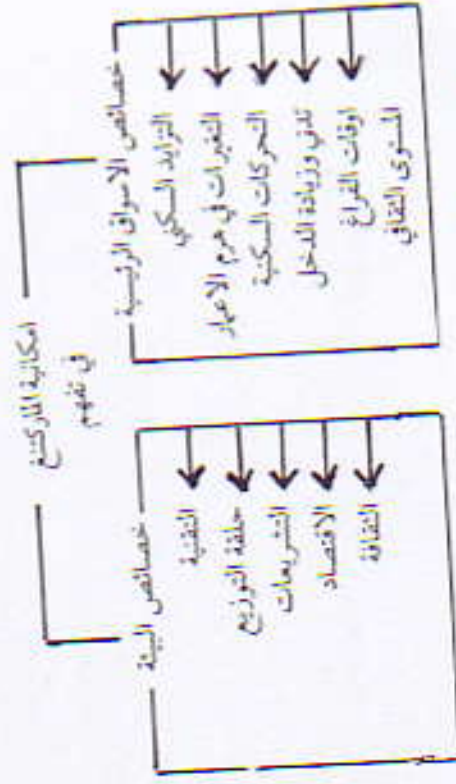 امكانية الماركتنغ
في تفهم
خصائص الاسواق الرئيسية
التزايد السكني
التغيرات في هرم الاعمار
التحركات السكنية
تدني وزيادة الدخل
اوقات الفراغ
المستوى الثقافي
خصائص البيئة
التقنية
حلقة التوزيع
التشريعات
الاقتصاد
الثقافة